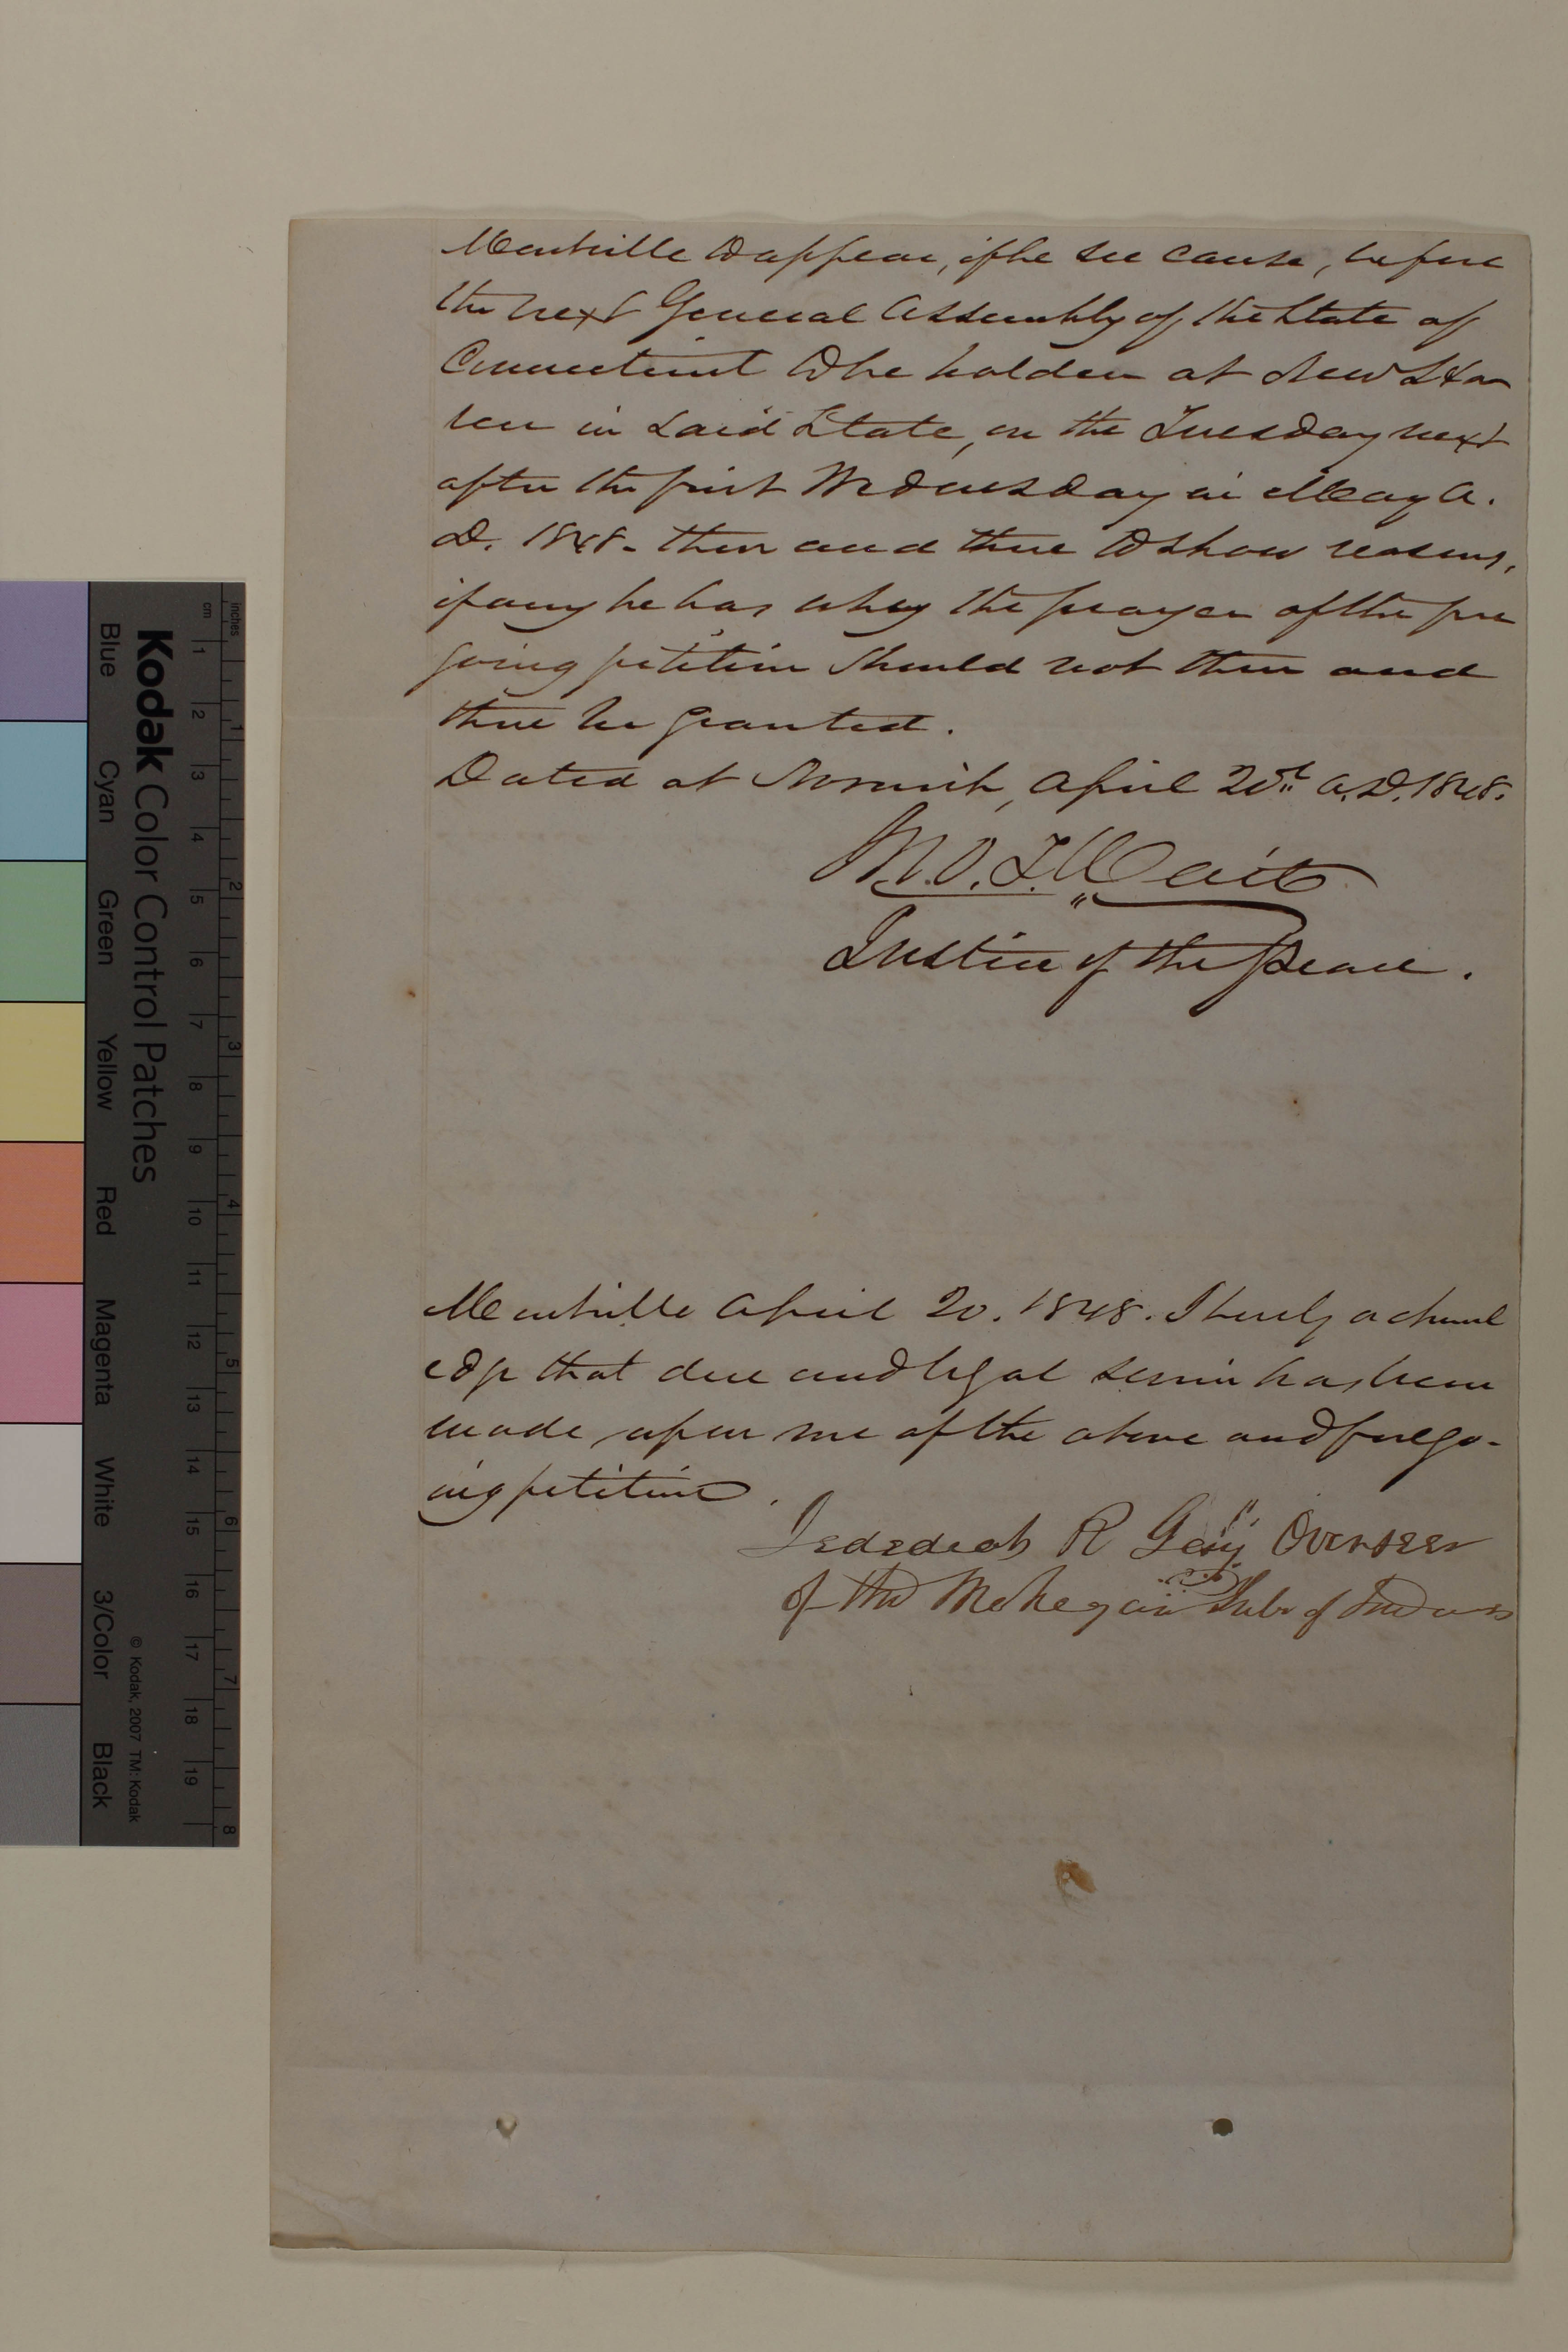 Montville to appear, if he see cause, before
the next General Assembly of the State of
Connecticut to be holden at New Ha
ven in said State, on the Tuesday next
after the first Wednesday in May A.
D. 1848. then and there to show reasons,
if any he has why the prayer of the fore
going petition should not then and
there be granted.
Dated at Norwich, April 20th A.D. 1848.
Justice of the Peace.
Montville April 20. 1848. I hereby acknowl
edge that due and legal service has been
made upon me of the above and forego-
ing petition.
Jedediah R Gay Overseer
of the Mohegan Tribe of Indians
Kodak Color Control Patches
Blue Cyan Green Yellow Red Magenta White 3/Color Black
© Kodak, 2007 TM: Kodak
cm 1 2 3 4 5 6 7 8 9 10 11 12 13 14 15 16 17 18 19
inches 1 2 3 4 5 6 7 8